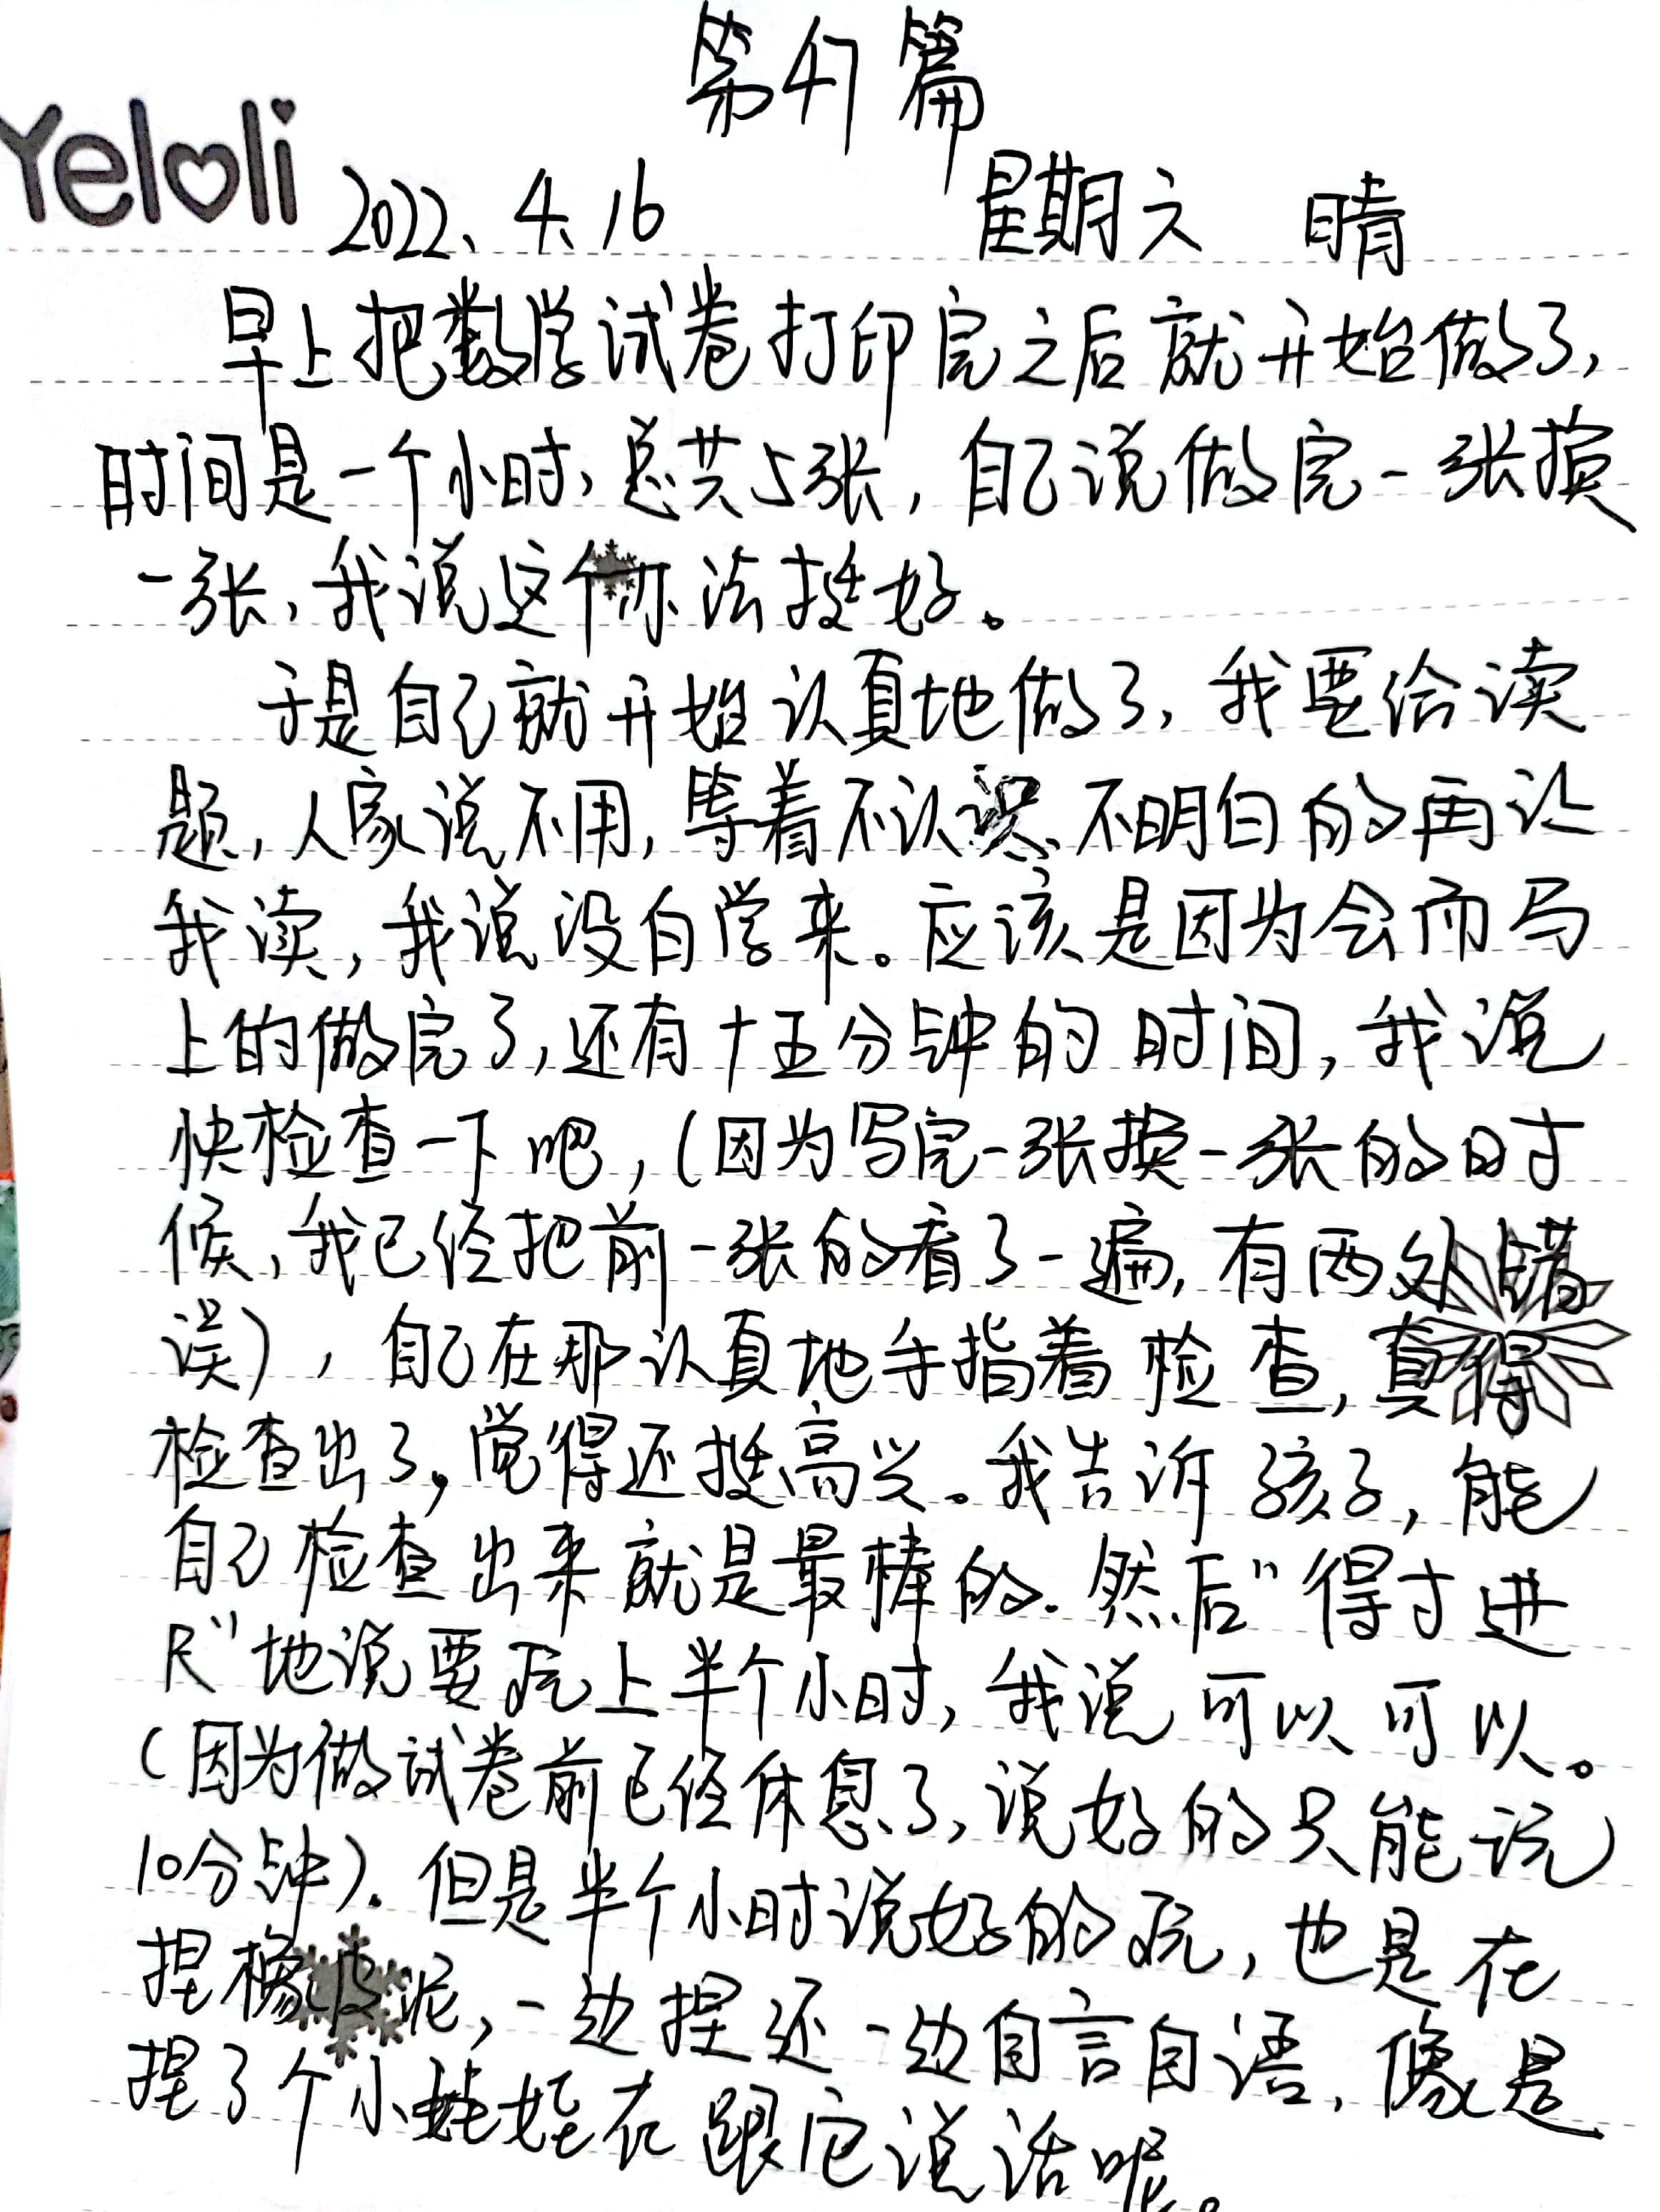 第47篇
Yeloli
2022、4、16 星期六 晴
早上把数学试卷打印完之后就开始做了,
时间是一个小时,总共5张,自己说做完一张换
一张,我说这个办法挺好。
于是自己就开始认真地做了,我要给读
题,人家说不用,等着不认识、不明白的再让
我读,我说没白学来。应该是因为会而马
上的做完了,还有十五分钟的时间,我说
快检查一下吧,(因为写完一张换一张的时
候,我已经把前一张的看了一遍,有两处错
误),自己在那认真地手指着检查,真得
检查出了,觉得还挺高兴。我告诉孩子,能
自己检查出来就是最棒的.然后"得寸进
尺"地说要玩上半个小时,我说可以可以。
(因为做试卷前已经休息了,说好的只能玩
10分钟).但是半个小时说好的玩,也是在
捏橡皮泥,一边捏还一边自言自语,像是
捏了个小娃娃在跟它说话呢。